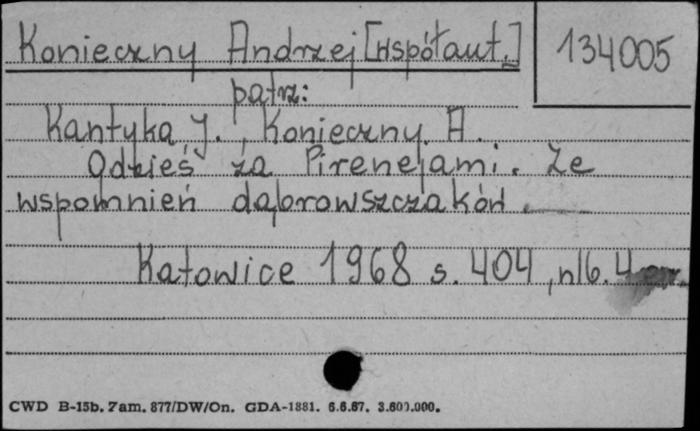 Konieczny Andrzej [współaut.]
134005
patrz:
Kantyka J., Konieczny A.
Gdzieś za Pirenejami. Ze
wspomnień dąbrowszczaków.
Katowice 1968 s. 404, nlb. 4
CWD B-15b. Zam. 877/DW/On. GDA-1881. 6.6.67. 3.600.000.